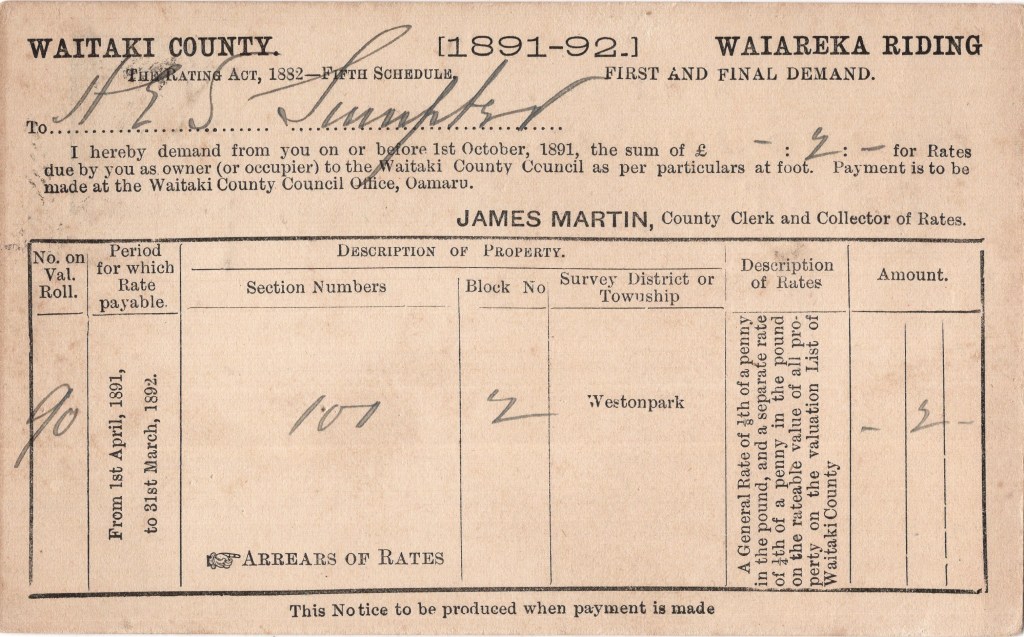 WAITAKI COUNTY. [1891-92.] WAIAREKA RIDING
THE RATING ACT, 1882—FIFTH SCHEDULE. FIRST AND FINAL DEMAND.
To H E S Sumpter
I hereby demand from you on or before 1st October, 1891, the sum of £ - : 2 : - for Rates
due by you as owner (or occupier) to the Waitaki County Council as per particulars at foot. Payment is to be
made at the Waitaki County Council Office, Oamaru.
JAMES MARTIN, County Clerk and Collector of Rates.
No. on
Val.
Roll.
Period
for which
Rate
payable.
DESCRIPTION OF PROPERTY.
Section Numbers
Block No
Survey District or
Township
Description
of Rates
Amount.
90
From 1st April, 1891,
to 31st March, 1892.
101
2
Westonpark
A General Rate of ⅛th of a penny
in the pound, and a separate rate
of ⅛th of a penny in the pound
on the rateable value of all pro-
perty on the valuation List of
Waitaki County
- 2 -
☞ ARREARS OF RATES
This Notice to be produced when payment is made